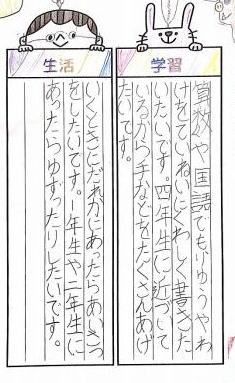 学習
算数や国語でもりゆうやわ
けをていねいにくわしく書きた
いたいです。四年生に近づいて
いるから手などをたくさんあげ
たいです。
生活
いくときにだれかにあったらあいさつ
をしたいです。1年生や二年生に
あったらゆずったりしたいです。